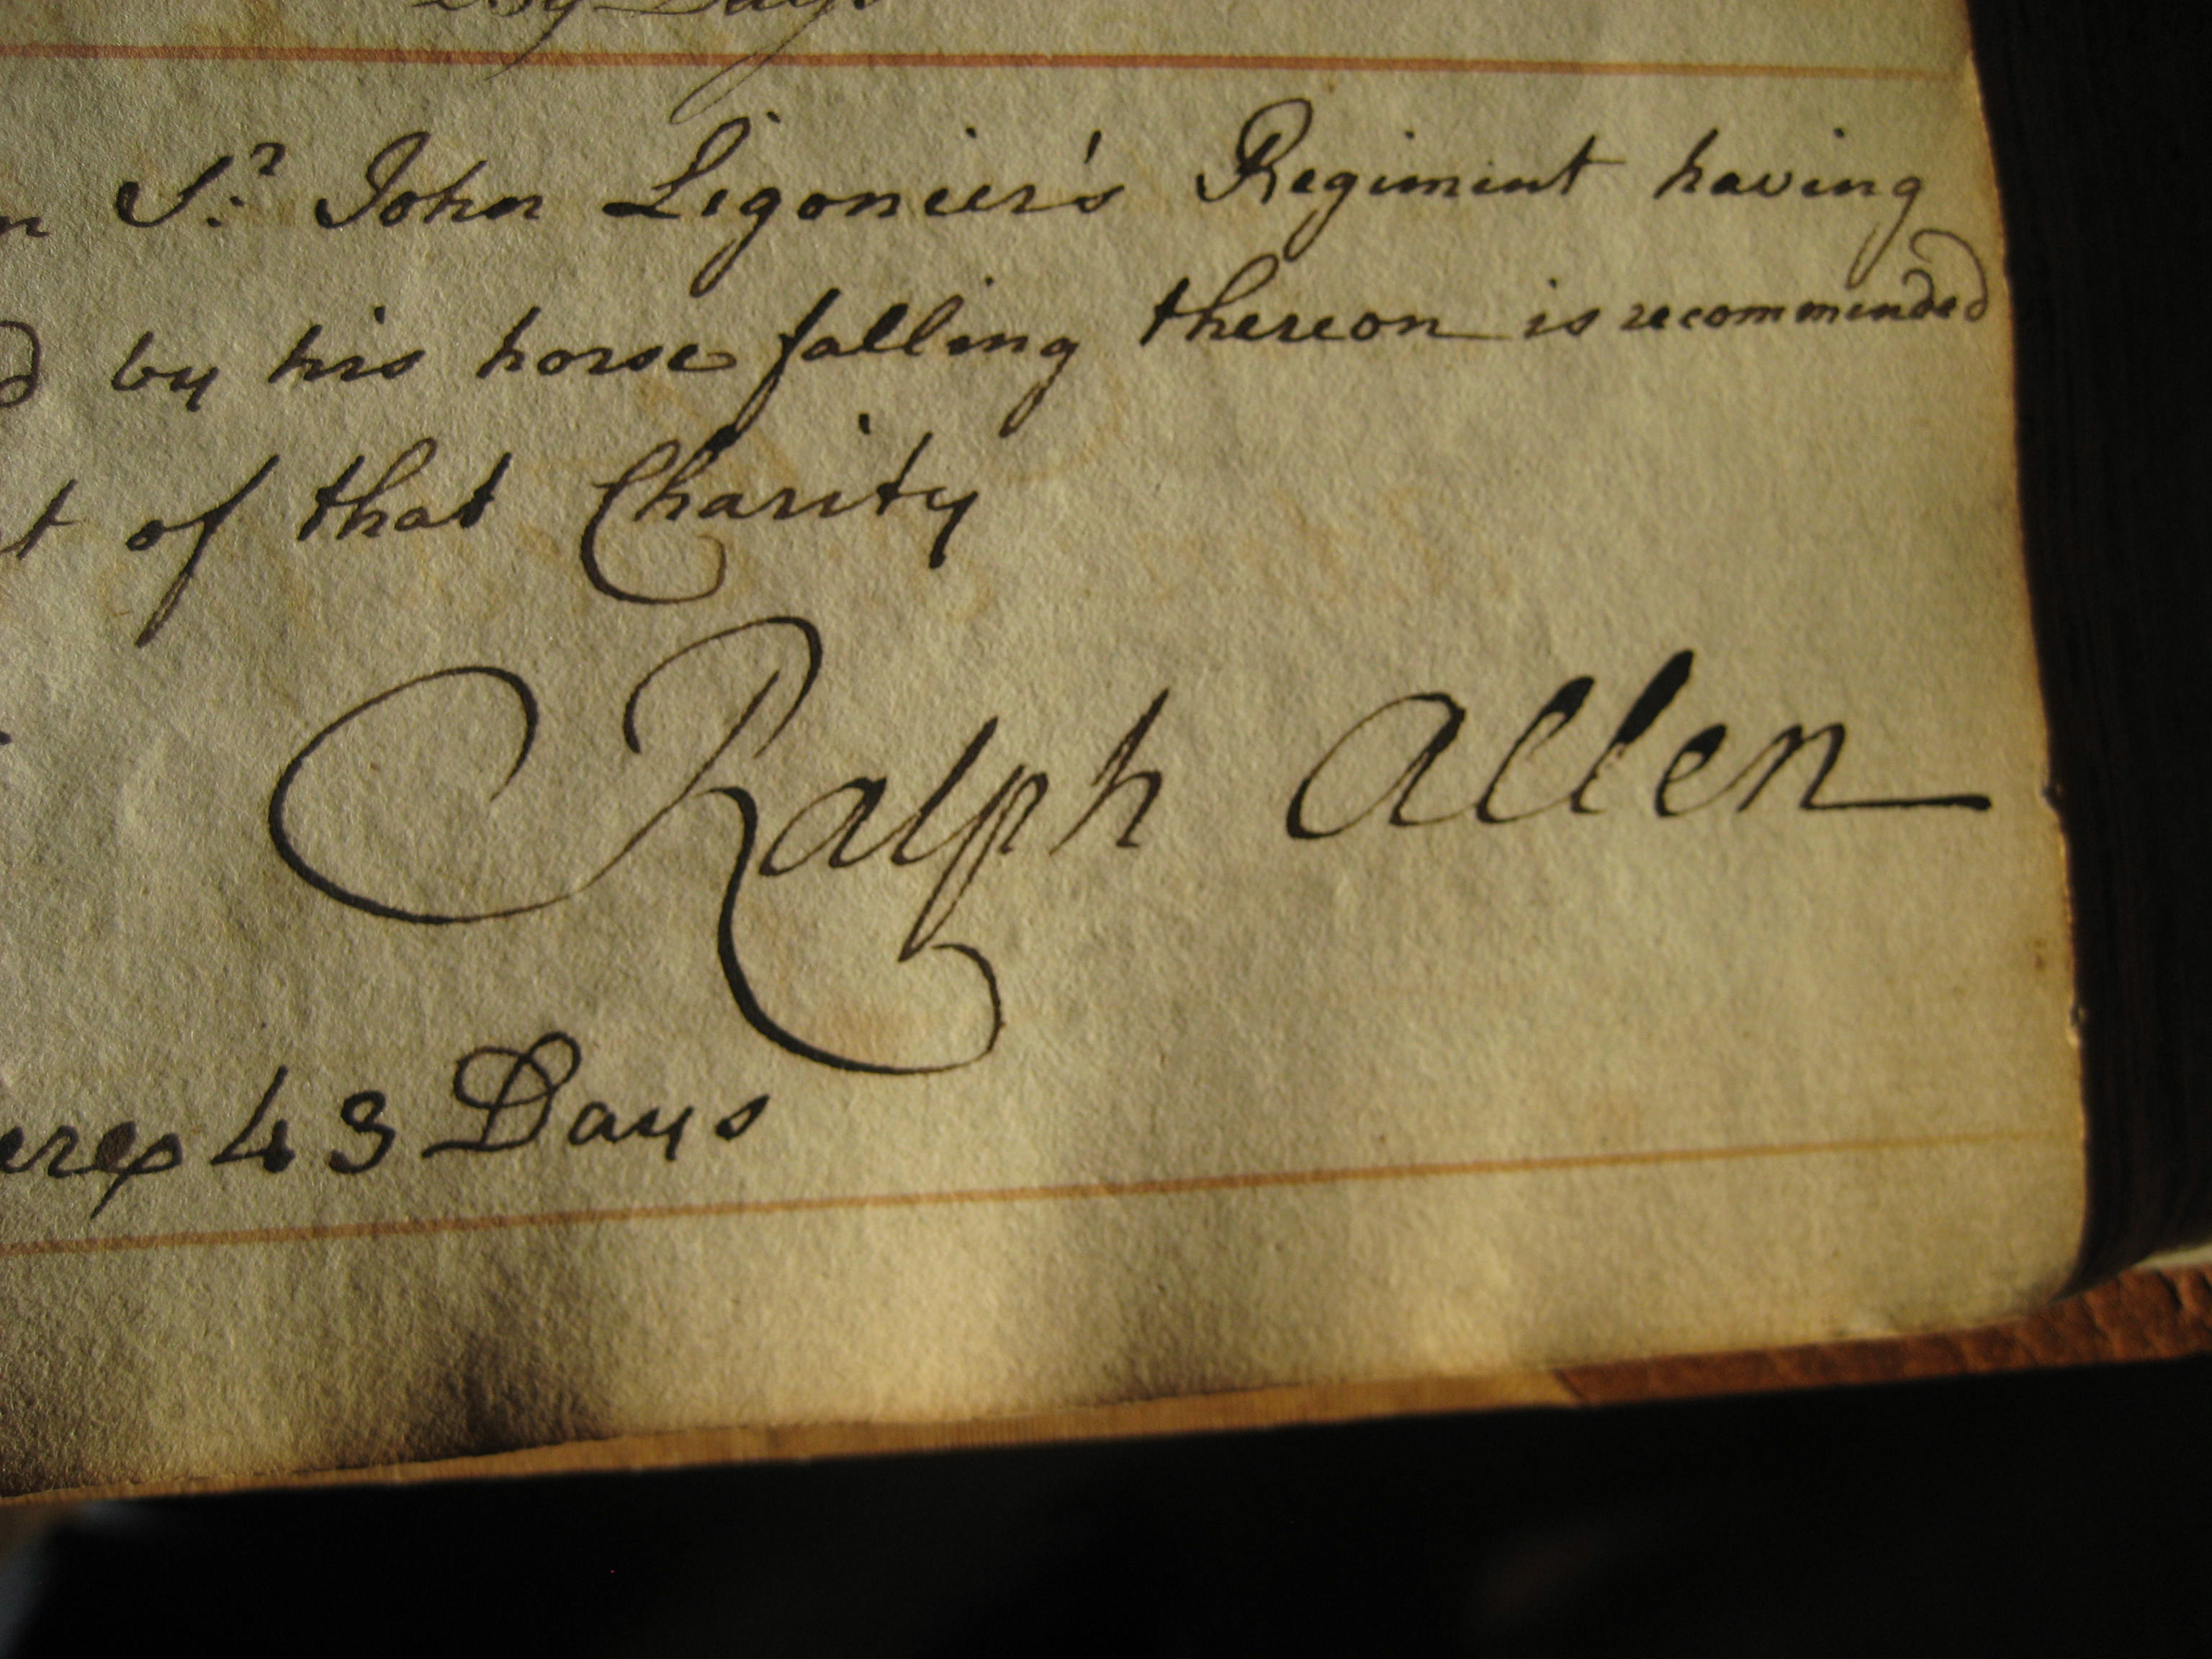 Days
n Sr. John Ligonier's Regiment having
d by his horse falling thereon is recommended
t of that Charity
Ralph Allen
43 Days